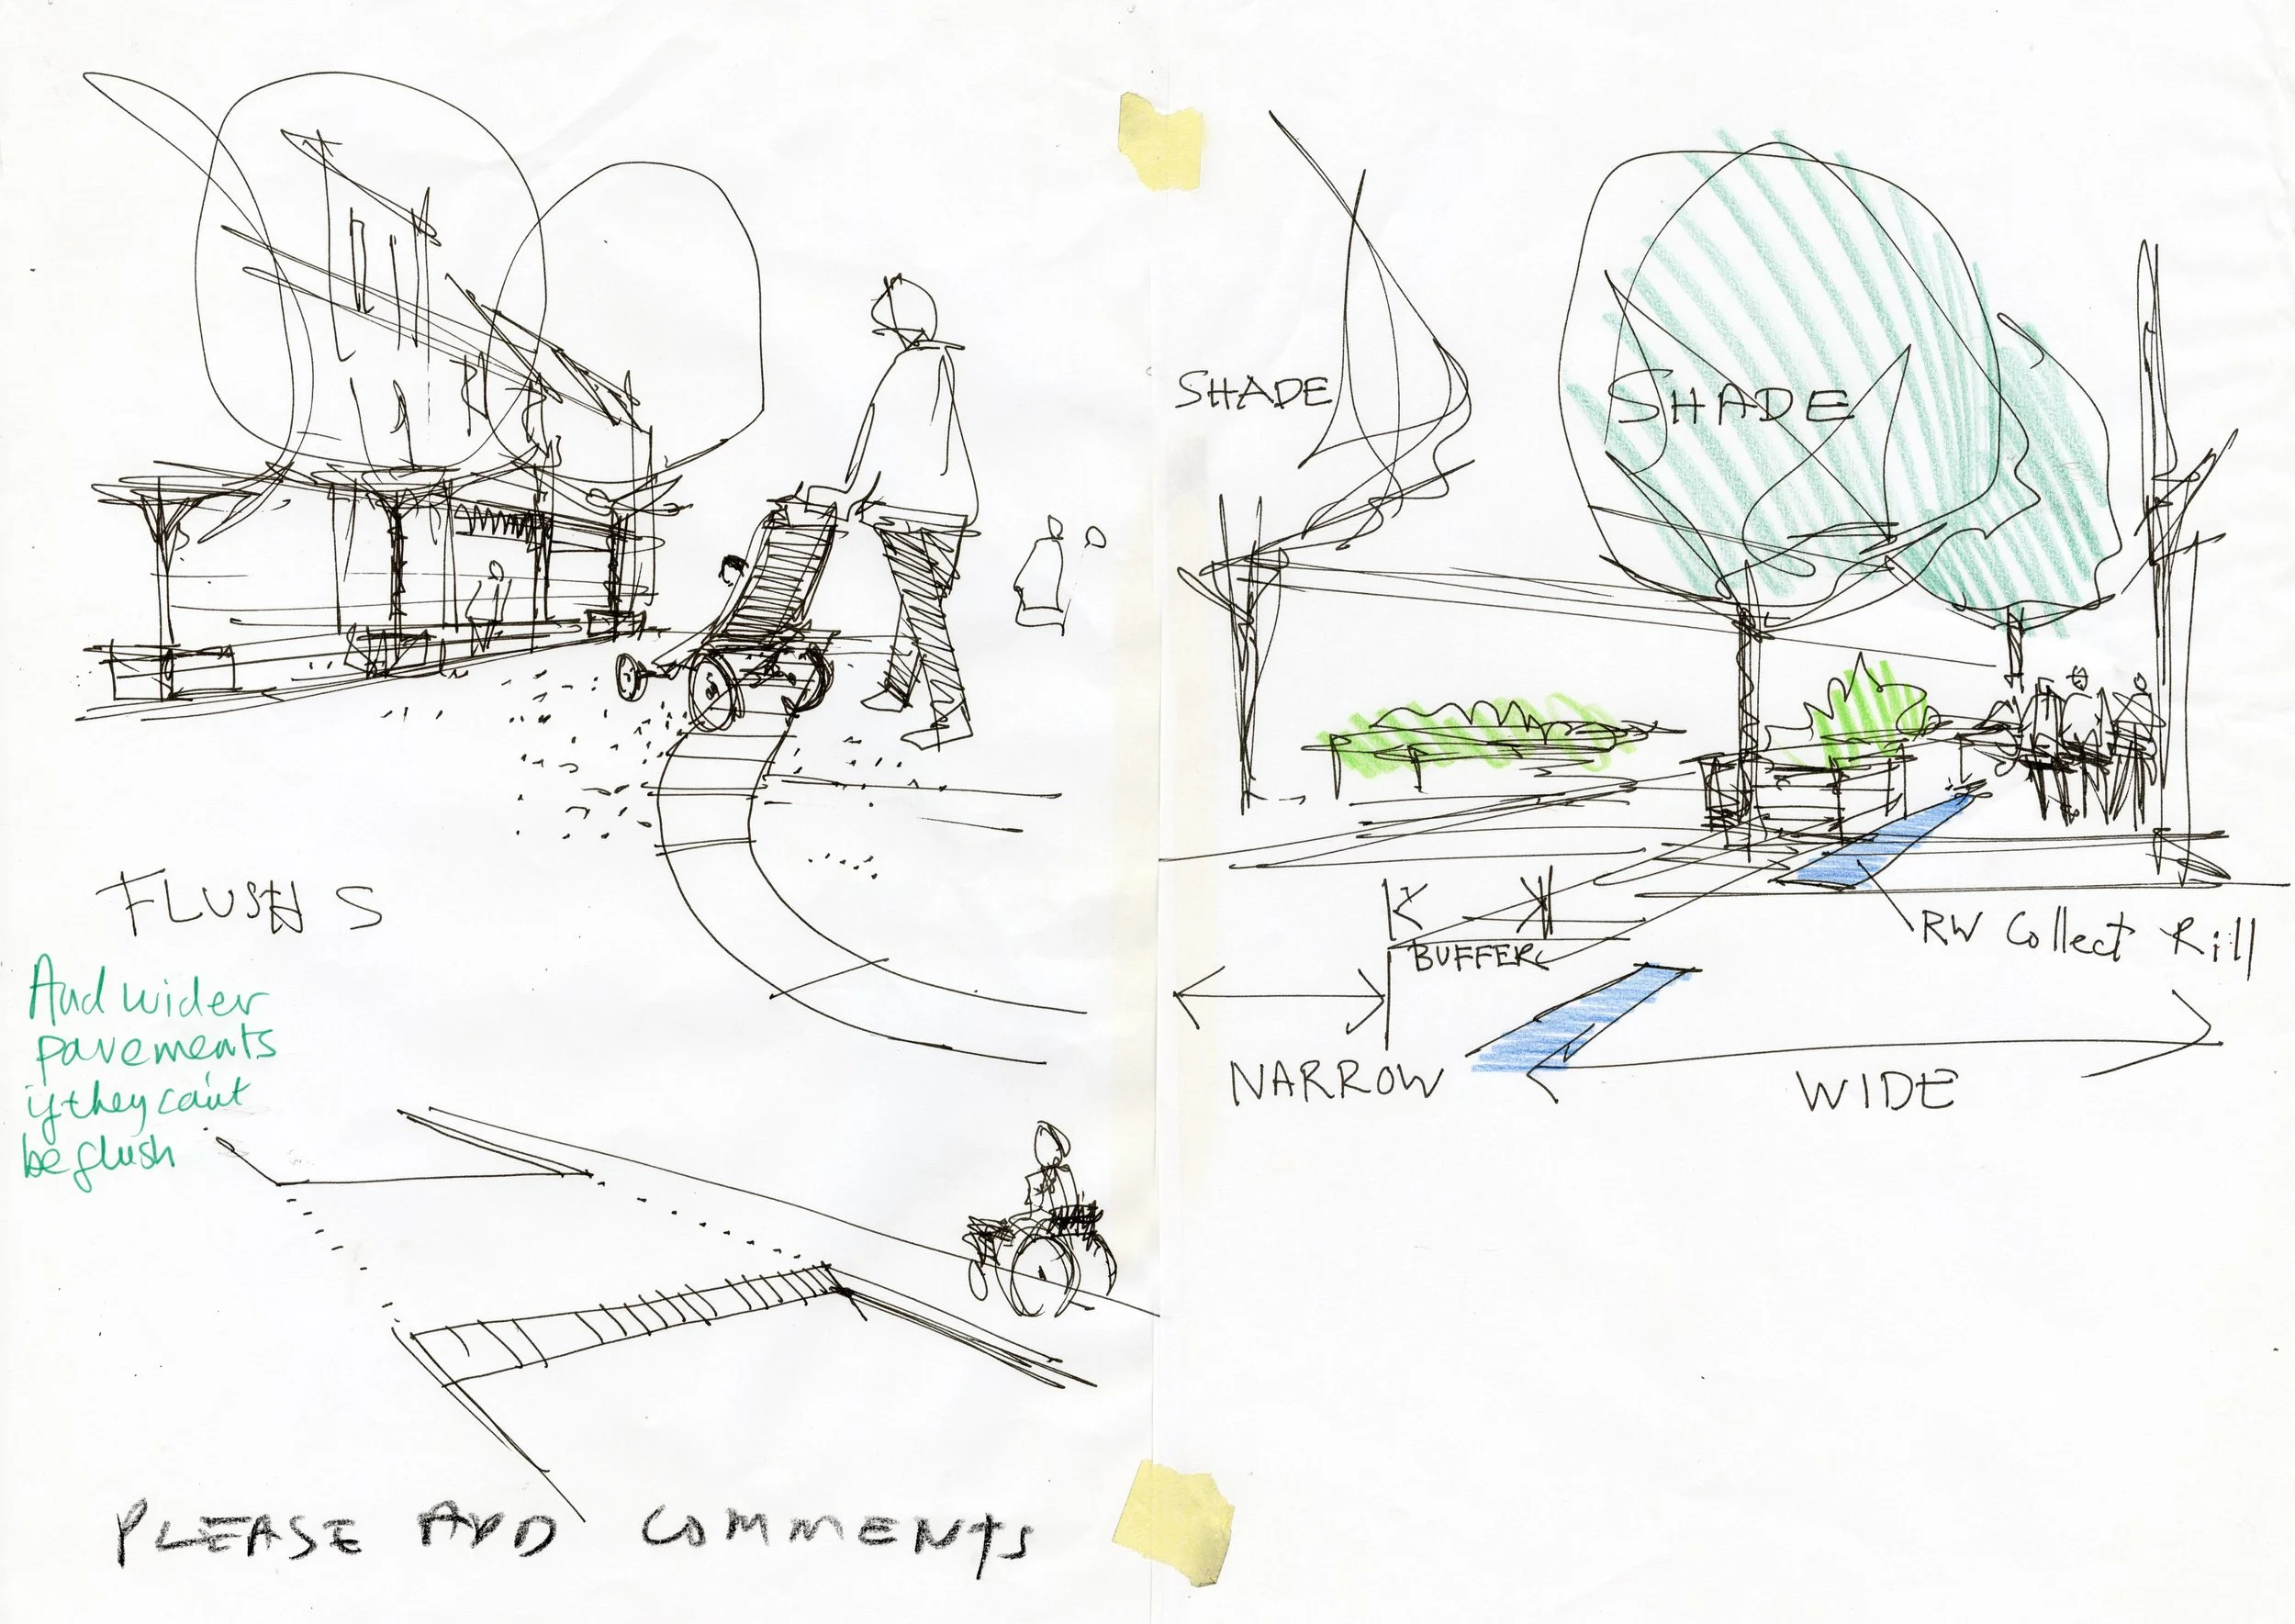 FLUSH S
And wider
pavements
if they can't
be flush
PLEASE ADD COMMENTS
SHADE
SHADE
BUFFER
RW Collect Rill
NARROW
WIDE